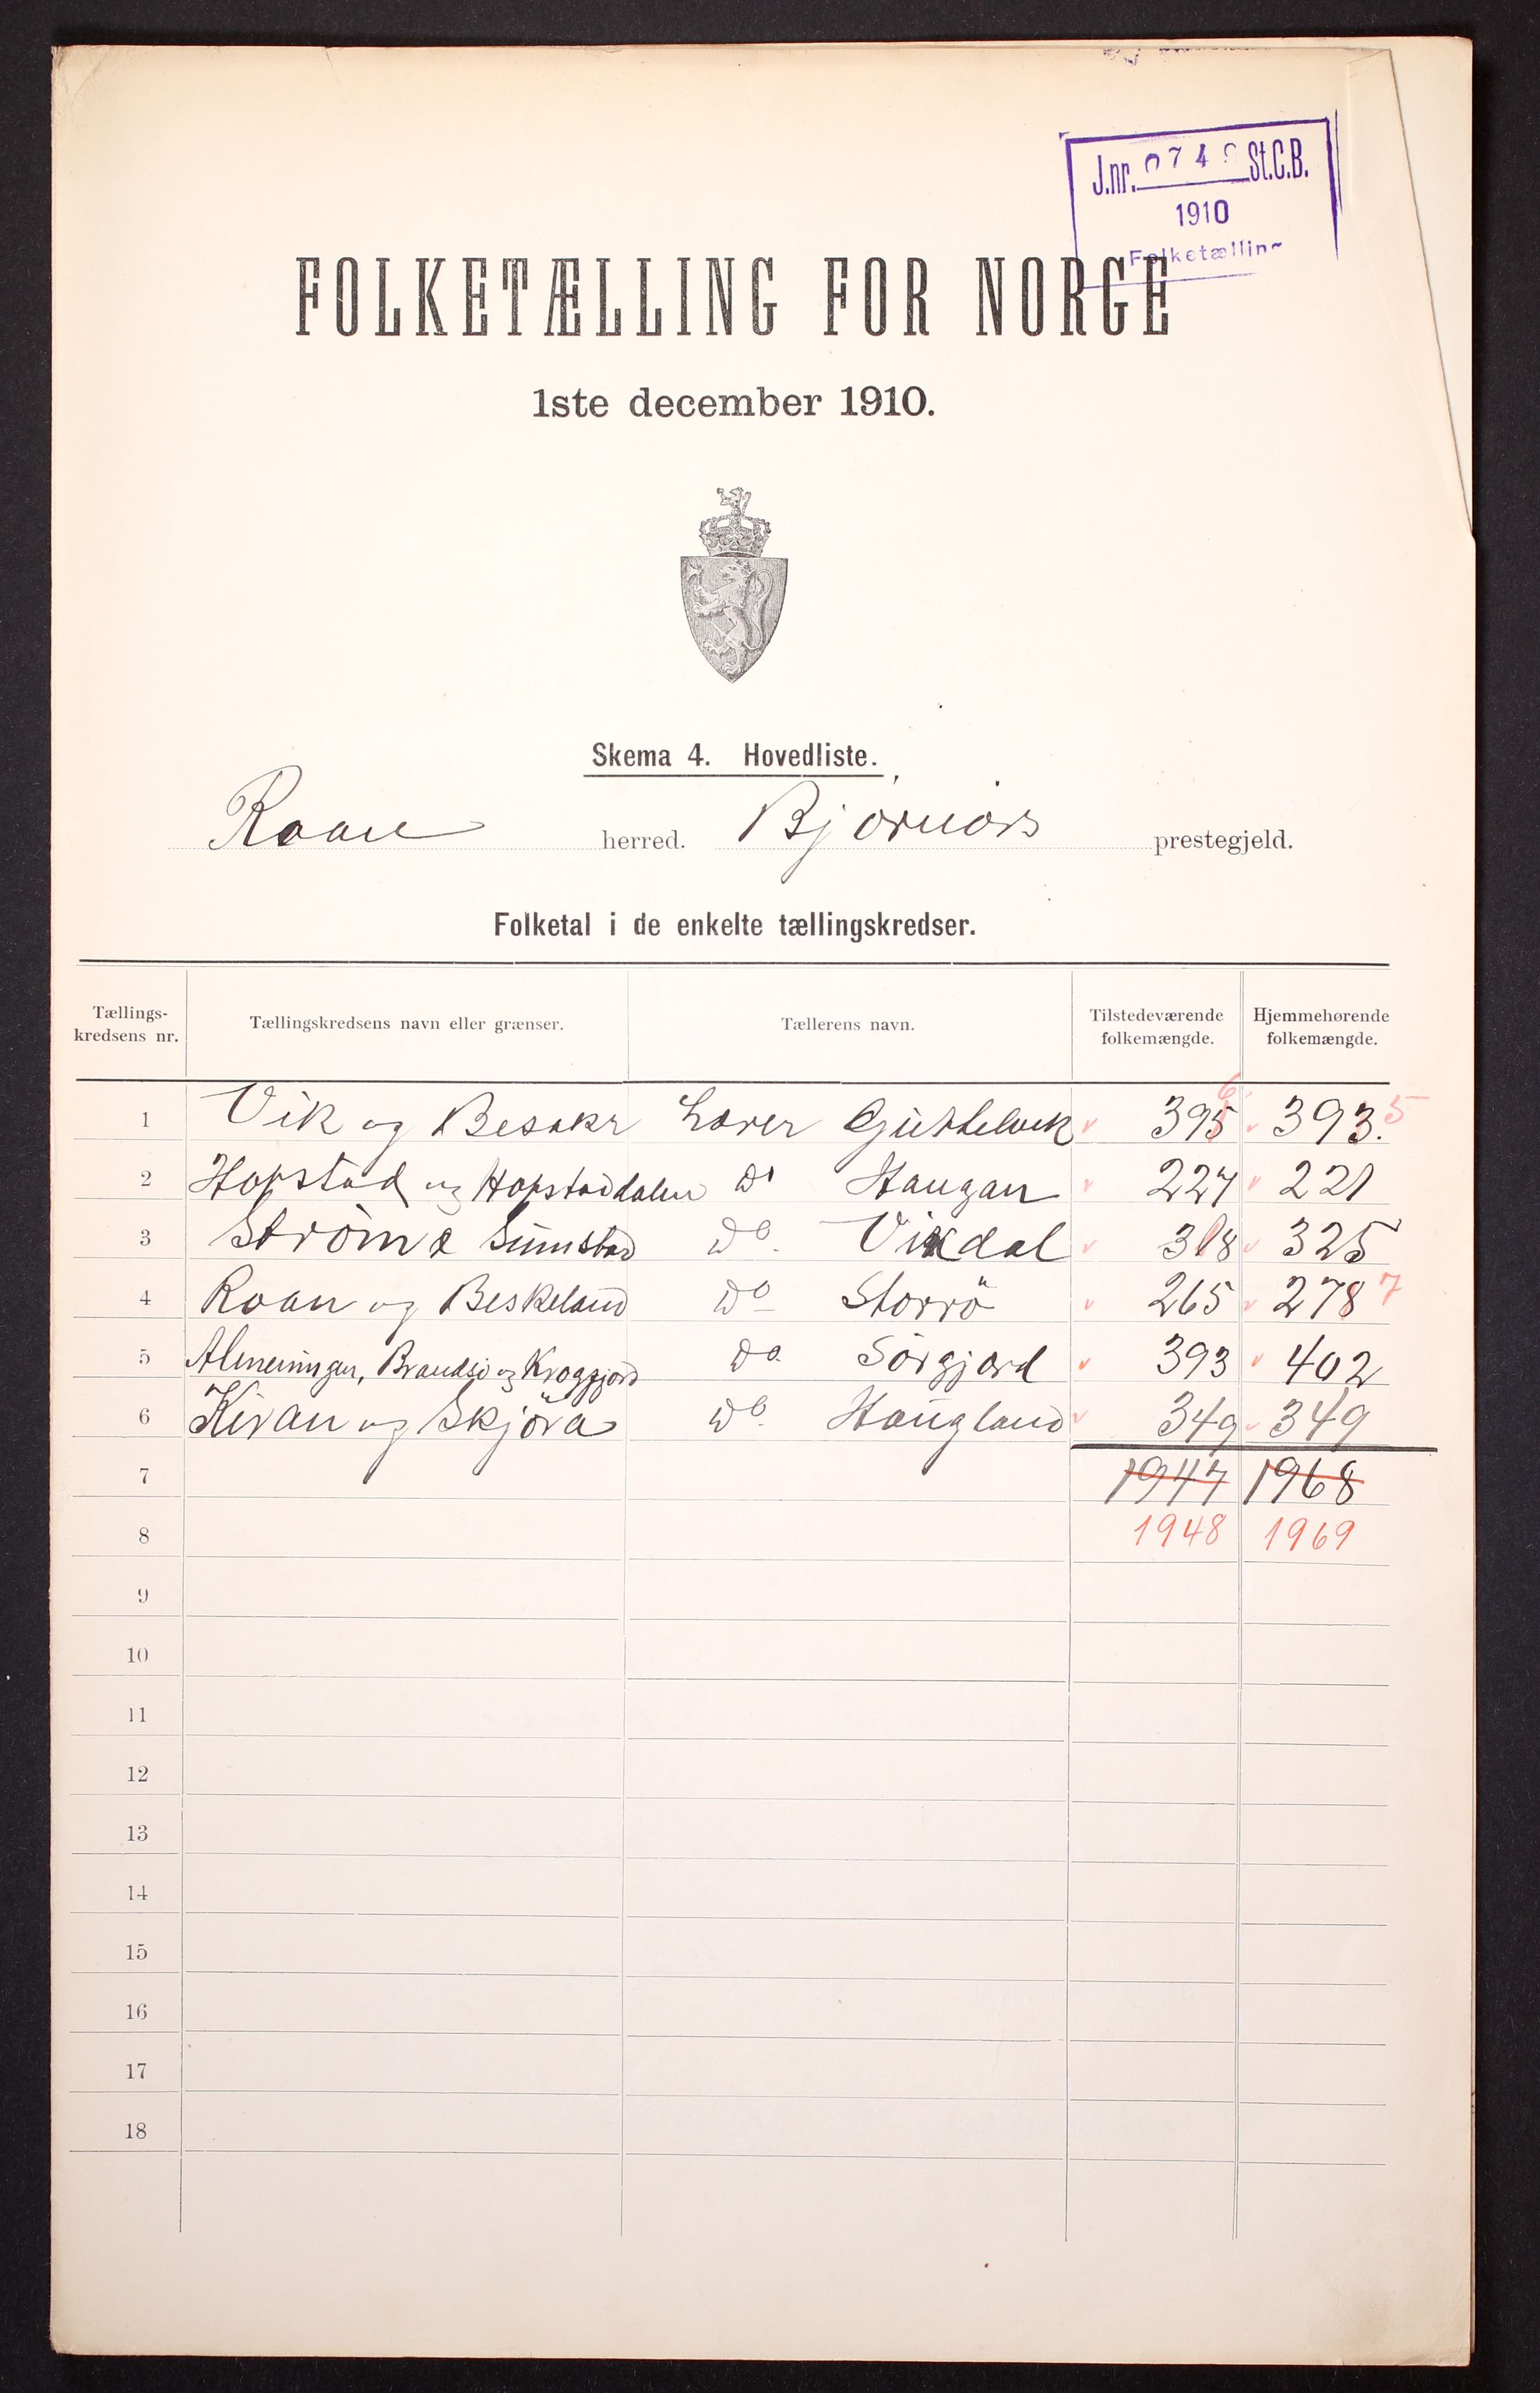 J.nr. 0749 St.C.B.
1910
Folketælling
FOLKETÆLLING FOR NORGE
1ste december 1910.
Skema 4. Hovedliste.
Roan herred. Bjørnørs prestegjeld.
Folketal i de enkelte tællingskredser.
Tællings-kredsens nr. Tællingskredsens navn eller grænser. Tællerens navn. Tilstedeværende folkemængde. Hjemmehørende folkemængde.
1 Vik og Besaker Lærer 395 6 393. 5
2 Hopstad og Hopstaddalen Do Haugan 227 221
3 Strøm & Sumstad Do Vikdal 318 325
4 Roan og Beskeland Do Storrö 265 278 7
5 Almeningen, Brandsø og Kroggjord Do Sörgjerd 393 402
6 Kiran og Skjöra Do Haugland 349 349
7 1947 1968
8 1948 1969
9
10
11
12
13
14
15
16
17
18